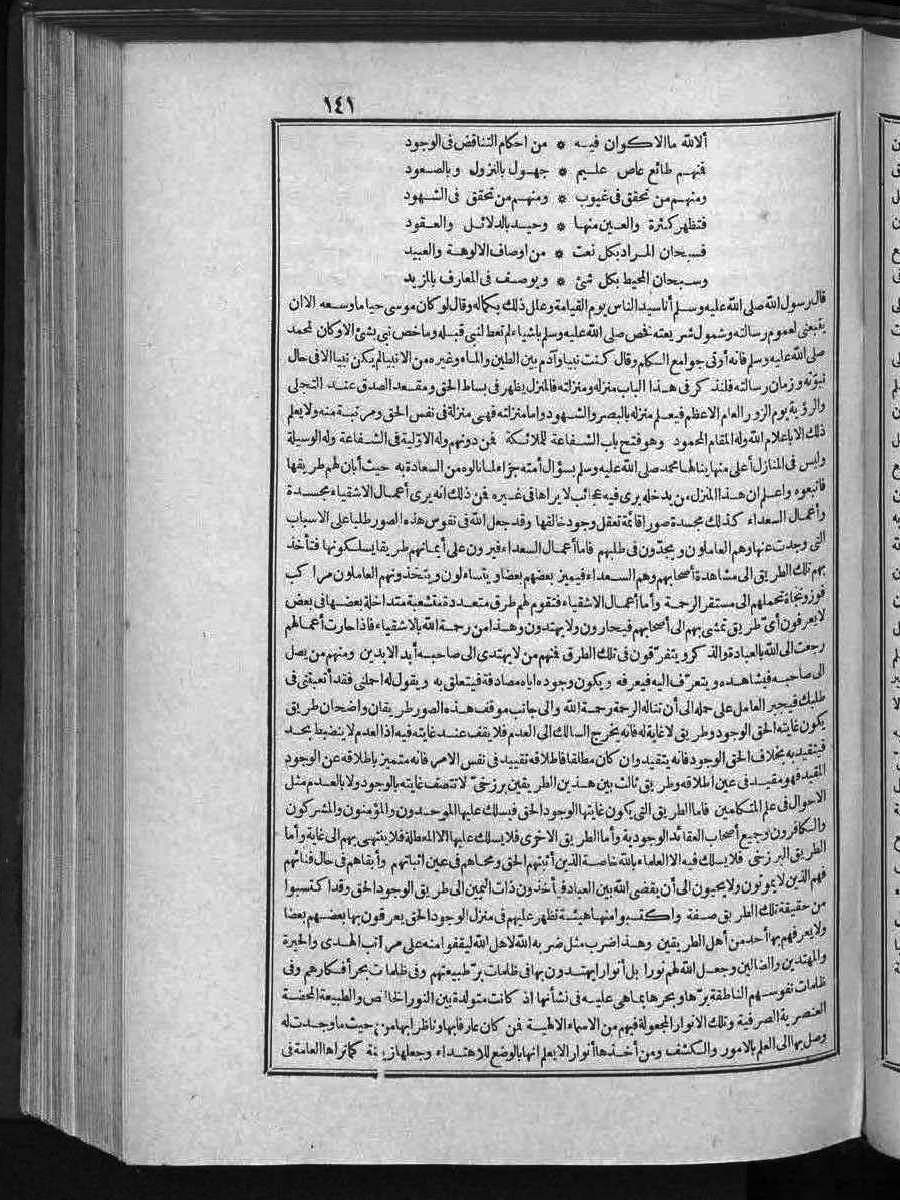 ١٤١
ألا لله ما الاكوان فيه * من احكام التناقض فى الوجود
فنهم طائع عاص عليم * جهول بالنزول وبالصعود
ومنهم من تحقق فى غيوب * ومنهم من تحقق فى الشهود
فتظهر كثرة والعين منها * وحيد بالدلائل والعقود
فسبحان المراد بكل نعت * من اوصاف الالوهة والعبيد
وسبحان المحيط بكل شئ * ويوصف فى المعارف بالمزيد
قال رسول الله صلى الله عليه وسلم أنا سيد الناس يوم القيامة وعلل ذلك بكماله وقال لو كان موسى حيا ما وسعه الا ان
يتبعنى لعموم رسالته وشمول شريعته فخص صلى الله عليه وسلم باشياء لم تعط لنبى قبله وما خص نبى بشئ الا وكان لمحمد
صلى الله عليه وسلم فانه أوتى جوامع الكلم وقال كنت نبيا وآدم بين الطين والماء وغيره من الانبياء لم يكن نبيا الا فى حال
نبوّته وزمان رسالته فلنذكر فى هذا الباب منزله ومنزلته فالمنزل يظهر فى بساط الحق ومقعد الصدق عند التجلى
والرؤية يوم الزور العام الاعظم فيعلم منزله بالبصر والشهود وأما منزلته فهى منزلة فى نفس الحق ومرتبة منه ولا يعلم
ذلك الا باعلام الله وله المقام المحمود وهو فتح باب الشفاعة للملائكة فمن دونهم وله الاوّلية فى الشفاعة وله الوسيلة
وليس فى المنازل أعلى منها ينالها محمد صلى الله عليه وسلم بسؤال أمته جزاء لما نالوه من السعادة به حيث أبان لهم طريقها
فاتبعوه واعلم ان هذا المنزل من يدخله يرى فيه عجائب لا يراها فى غيره فن ذلك انه يرى أعمال الاشقياء مجسدة
وأعمال السعداء كذلك مجسدة صورا قائمة تعقل وجود خالقها وقد جعل الله فى نفوس هذه الصور طلبا على الاسباب
التى وجدت عنها وهم العاملون ويجدّون فى طلبهم فاما أعمال السعداء فيرون على أيمانهم طريقا يسلكونها فتأخذ
بهم تلك الطريق الى مشاهدة أصحابهم وهم السعداء فيميز بعضهم بعضا ويتساءلون ويتخذونهم العاملون مراكب
فوز ونجاة تحملهم الى مستقر الرحمة وأما أعمال الاشقياء فتقوم لهم طرق متعددة متشعبة متداخلة بعضها فى بعض
لا يعرفون أىّ طريق تمشى بهم الى أصحابهم فيحارون ولا يهتدون وهذا من رحمة الله بالاشقياء فاذا حارت أعمالهم
رجعت الى الله بالعبادة والذكر ويتفرّقون فى تلك الطرق فنهم من لا يهتدى الى صاحبه أبد الابدين ومنهم من يصل
الى صاحبه فيشاهده ويتعرّف اليه فيعرفه ويكون وجوده اياه مصادفة فيتعلق به ويقول له احملنى فقد أتعبتنى فى
طلبك فيجبر العامل على حمله الى أن تناله الرحمة رحمة الله والى جانب موقف هذه الصور طريقان واضحان طريق
يكون غايته الحق الوجود وطريق لا غاية له فانه يخرج السالك الى العدم فلا يقف عند غايته فيه اذ العدم لا ينضبط بحد
فيتقيد به بخلاف الحق الوجود فانه يتقيد وان كان مطلقا فاطلاقه تقييد فى نفس الامر فانه متميز باطلاقه عن الوجود
المقيد فهو مقيد فى عين اطلاقه وطريق ثالث بين هذين الطريقين برزخىّ لا تتصف غايته بالوجود ولا بالعدم مثل
الاحوال فى علم المتكلمين فاما الطريق التى يكون غايتها الوجود الحق فيسلك عليها الموحدون والمؤمنون والمشركون
والكافرون وجميع أصحاب العقائد الوجودية وأما الطريق الاخرى فلا يسلك عليها الا المعطلة فلا ينتهى بهم الى غاية وأما
الطريق البرزخى فلا يسلك فيه الا العلماء بالله خاصة الذين أثبتهم الحق ومحاهم فى عين اثباتهم وأبقاهم فى حال فنائهم
فهم الذين لا يموتون ولا يحيون الى أن يقضى الله بين العباد فيأخذون ذات اليمين الى طريق الوجود الحق وقد اكتسبوا
من حقيقة تلك الطريق صفة واكتسبوا منها هيئة تظهر عليهم فى منزل الوجود الحق يعرفون بها بعضهم بعضا
ولا يعرفهم بها أحد من أهل الطريقين وهذا ضرب مثل ضربه الله لاهل الله ليقفوا منه على مراتب الهدى والحيرة
والمهتدين والضالين وجعل الله لهم نورا بل أنوارا يهتدون بها فى ظلمات برّ طبيعتهم وفى ظلمات بحر أفكارهم وفى
ظلمات نفوسهم الناطقة برّها وبحرها بما هى عليه فى نشأتها اذ كانت متولدة بين النور الخالص والطبيعة المحضة
العنصرية الصرفية وتلك الانوار المجعولة فيهم من الاسماء الالهية فن كان عارفا بها وناظرا بها من حيث ما وجدت له
وصل بها الى العلم بالامور والكشف ومن أخذها أنوارا لا يعلم انها بالوضع للاهتداء وجعلها زينة كما تراها العامة فى